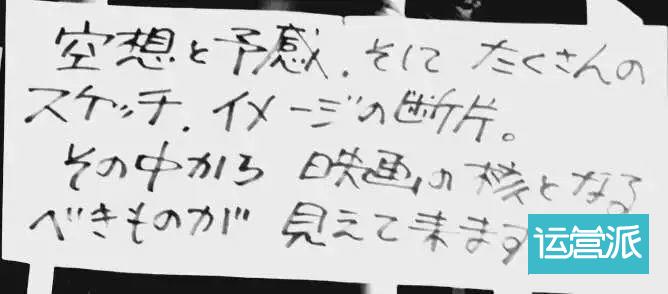 空想と予感.そして たくさんの
スケッチ.イメージの断片。
その中から 映画の核となる
べきものが 見えて来ます
运营派